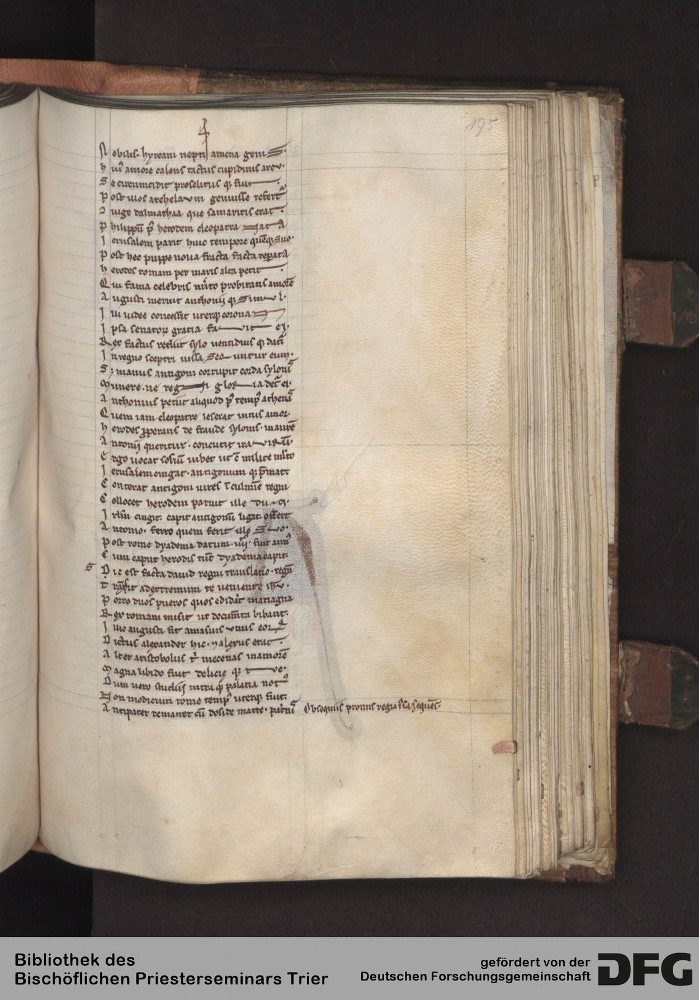 195
Nobilis. hyrcani nepti amena geni S.
huiˀ amore calens tactus cupidinis arcu.
Se circumcidit proselitus qͥ fuit
Post illos archelaum genuisse refert
iuge dalmathaa que samaritis erat
Philippū p̄ herodem cleopatra
Ierusalem parit huic tempore
Post hec puppe noua fracta facta reparata
herodes romam per maris alta petit
Qui fama celebris mīto probitatis amore
Augusti meruit anthonii qͥ simul
Iui uidee concessit uterqͥ corona
Ipsa senatorꝝ gratia fauit ei.
Rex factus rediit sylo uentidius qͥ dati
In regno sceptri iussa secuntur eum.
Sꝫ manus antigoni corrupit corda sylonis
Munere. ne regni gloria det̄ ei.
Anthonius petiit aliquod p̄ tempꝰ athenas
Quem iam cleopatre leserat intus amor
herodes ꝓperans de fraude sylonis. in aure
Antonii queritur. concutit ira uirū
Ergo uocat sosiū iubet ut c̄ milite mīto
Ierusalem cingat. antigonum qͥ p̄mat
Conterat antigoni uires ī culmine regni
Collocet herodem paruit ille duci.
Irlm̄ cingit. capit antigonū ligat. offert
Antonio. ferro quem ferit ille suo.
Post rome dyadema datum. iiij. fuit annꝰ
Cum caput herodis tūc dyadema capit.
S Dic est facta dauid regni translatio. regn̄
transit ad extremum te ueniente ihū.
Porro duos pueros quos edidat mariagna
Rex romam misit ut documta bibant.
Iuic augusti fit amasius unus eorꝝ
Dictus alexander hic. ualerus erat
Alter aristobolus & mecenas in amore
Magna libido fuit delicie qͥ tue.
Dum uero studiis intra qͥ palatia notꝰ
Non modicum rome tempꝰ uterqͥ fuit.
Antipater remanet cū doside matre. patrīa Obsequiis pronus regia sequēs.
Bibliothek des
Bischöflichen Priesterseminars Trier
gefördert von der
Deutschen Forschungsgemeinschaft DFG